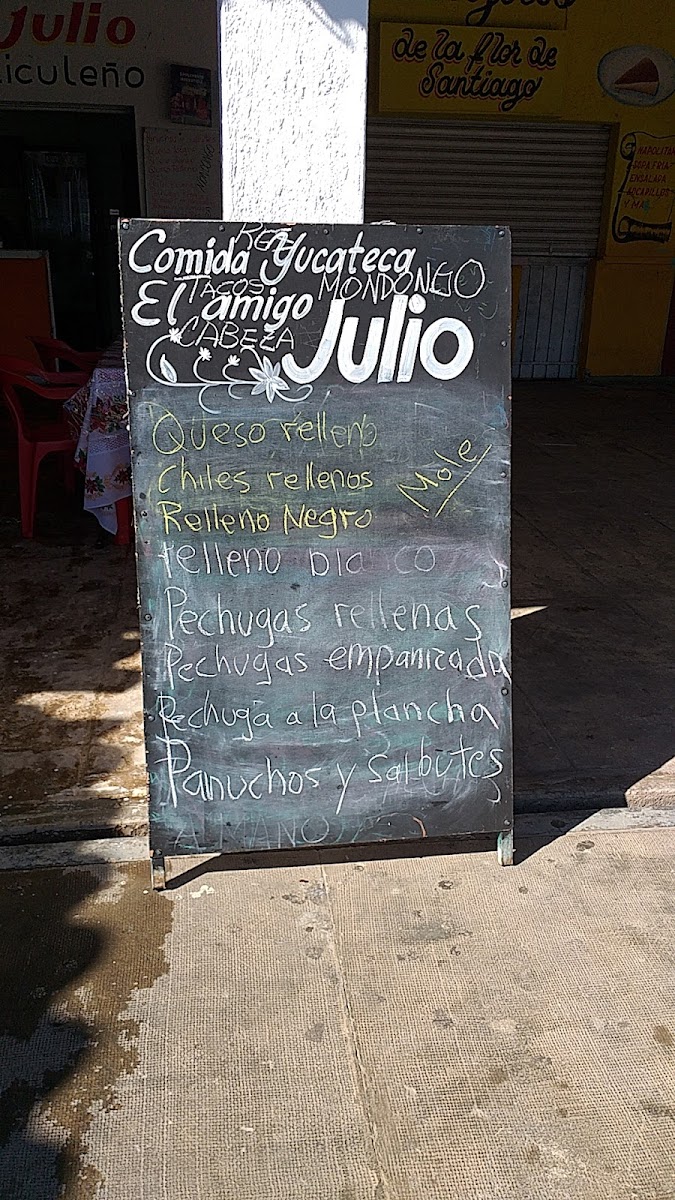 Julio
iculeño
de la flor de
Santiago
NAPOLITA
SOPA FRIA
ENSALADA
Y MAS
Comida Yucateca
TACOS MONDONGO
El amigo
CABEZA
Julio
Queso relleno
Chiles rellenos
Mole
Relleno Negro
relleno blanco
Pechugas rellenas
Pechugas empanizada
Pechuga a la plancha
Panuchos y Salbutes
A MANO